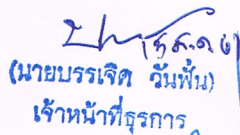 (นายบรรเจิด วันฟั่น)
เจ้าหน้าที่ธุรการ